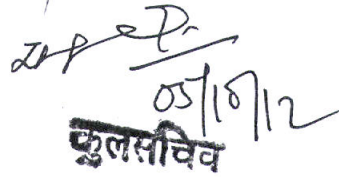 05/10/12
कुलसचिव